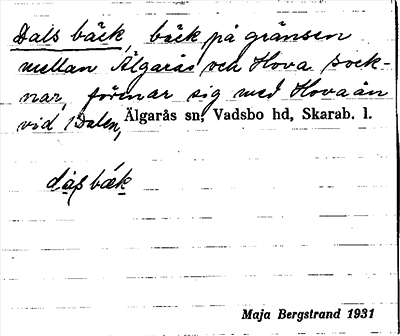 Dals bäck, bäck på gränsen
mellan Älgarås och Hova sock-
nar, förenar sig med Hovaån
vid Dalen,
Älgarås sn, Vadsbo hd, Skarab. l.
das bäk
Maja Bergstrand 1931